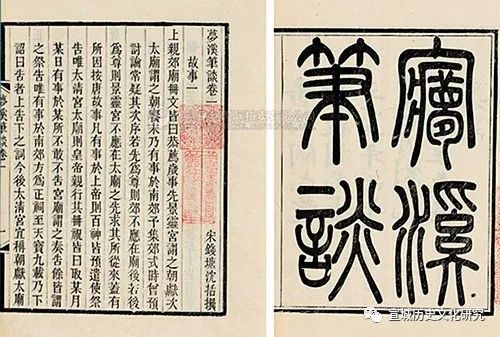 夢溪
筆談
夢溪筆談卷一
宋錢塘沈括撰
故事一
上親郊廟冊文皆曰恭薦歲事先景靈宮謂之朝獻次
太廟謂之朝饗末乃有事於南郊予集郊式時曾預
討論常疑其次序若先為尊則郊不應在廟後若後
為尊則景靈宮不應在太廟之先求其所從來蓋有
所因按唐故事凡有事於上帝則百神皆預遣使祭
告唯太清宮太廟則皇帝親行其冊祝皆曰取某月
某日有事於某所不敢不告宮廟謂之奏告餘皆謂
之祭告唯有事於南郊方為正祠至天寶九載乃下
詔曰告者上告下之詞今後太清宮宜稱朝獻太廟
夢溪筆談卷一
宣城历史文化研究